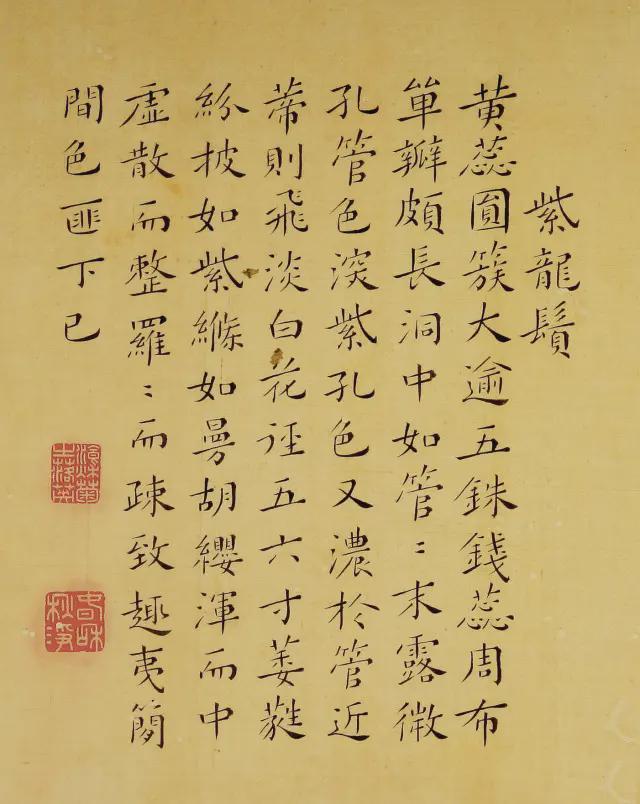 紫龍鬚
黄蕊圓簇大逾五銖錢蕊周布
單瓣頗長洞中如管〻末露微
孔管色深紫孔色又濃於管近
蒂則飛淡白花徑五六寸萎蕤
紛披如紫縧如曼胡纓渾而中
虛散而整羅〻而疎致趣夷簡
間色匪下已